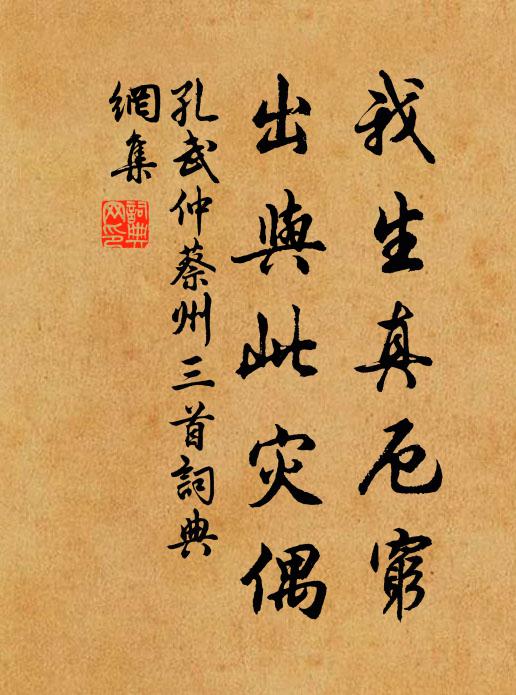 我生真厄窮
出與此灾偶
孔武仲蔡州三首詞典
網集
詞典
网印